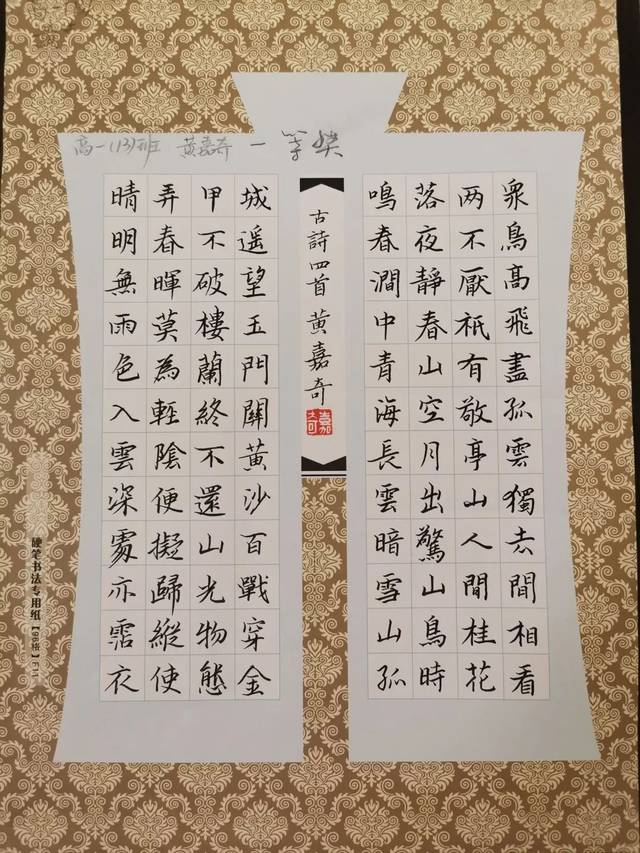 高一(13)班 黄嘉奇 一等奖
衆鳥高飛盡孤雲獨去間相看
两不厭衹有敬亭山人間桂花
落夜靜春山空月出驚山鳥時
鳴春澗中青海長雲暗雪山孤
古詩四首 黄嘉奇
城遥望玉門關黄沙百戰穿金
甲不破樓蘭終不還山光物態
弄春暉莫為輕陰便擬歸縱使
晴明無雨色入雲深處亦霑衣
硬笔书法专用纸【96格】